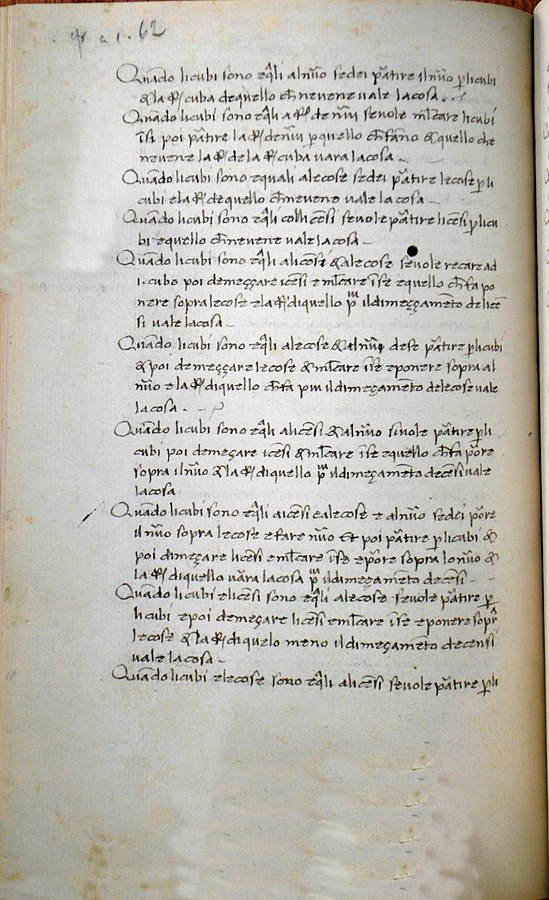 62
Quãdo li cubi sono eq̃li al nũo se dei p̃tire il nũo p li cubi
& la R de quello ch̃ ne vene vale la cosa
Quãdo li cubi sono eq̃li a R de nũo se vole m̃lcare li cubi
ĩ se poi p̃tire la R de nũo p quello ch̃ fãno & quello che
ne vene la R de la R cuba vara la cosa
Quãdo li cubi sono equali a le cose se dei p̃tire le cose p li
cubi e la R de quello ch̃ ne vene vale la cosa
Quãdo li cubi sono eq̃li colli cẽsi se vole p̃tire li cẽsi p li cu
bi e quello ch̃ ne vene vale la cosa
Quãdo li cubi sono eq̃li ali cẽsi & a le cose se vole recare ad
i cubo poi demeççare i cẽsi e m̃lcare ĩ se e quello ch̃ fa po
nere sopra le cose e la R di quello p il dimeççamẽto de li cẽ
si vale la cosa
Quãdo li cubi sono eq̃li a le cose & al nũo dese p̃tire p li cubi
& poi demeççare le cose & m̃lcare ĩ se e ponere sopra al
nũo e la R di quello ch̃ fa piu il dimeçamẽto de le cose vale
la cosa
Quãdo li cubi sono eq̃li a li cẽsi & al nũo si vole p̃tire p li
cubi poi demeçare i cẽsi & m̃lcare ĩ se e quello ch̃ fa põre
sopra il nũo & la R di quello p il dimeçamẽto de cẽsi vale
la cosa
Quãdo li cubi sono eq̃li ai cẽsi e a le cose e al nũo se dei põre
il nũo sopra le cose e fare nũo et poi p̃tire p li cubi &
poi dimeçare li cẽsi e m̃lcare ĩ se e põre sopra lo nũo &
la R di quello vara la cosa p il dimeçamẽto de cẽsi
Quãdo li cubi e li cẽsi sono eq̃li a le cose se vole p̃tire p
li cubi e poi demeçare li cẽsi e m̃lcare ĩ se e ponere sopr
le cose & la R di quelo meno il dimeçamẽto de censi
vale la cosa
Quãdo li cubi e le cose sono eq̃li a li cẽsi se vole p̃tire p li